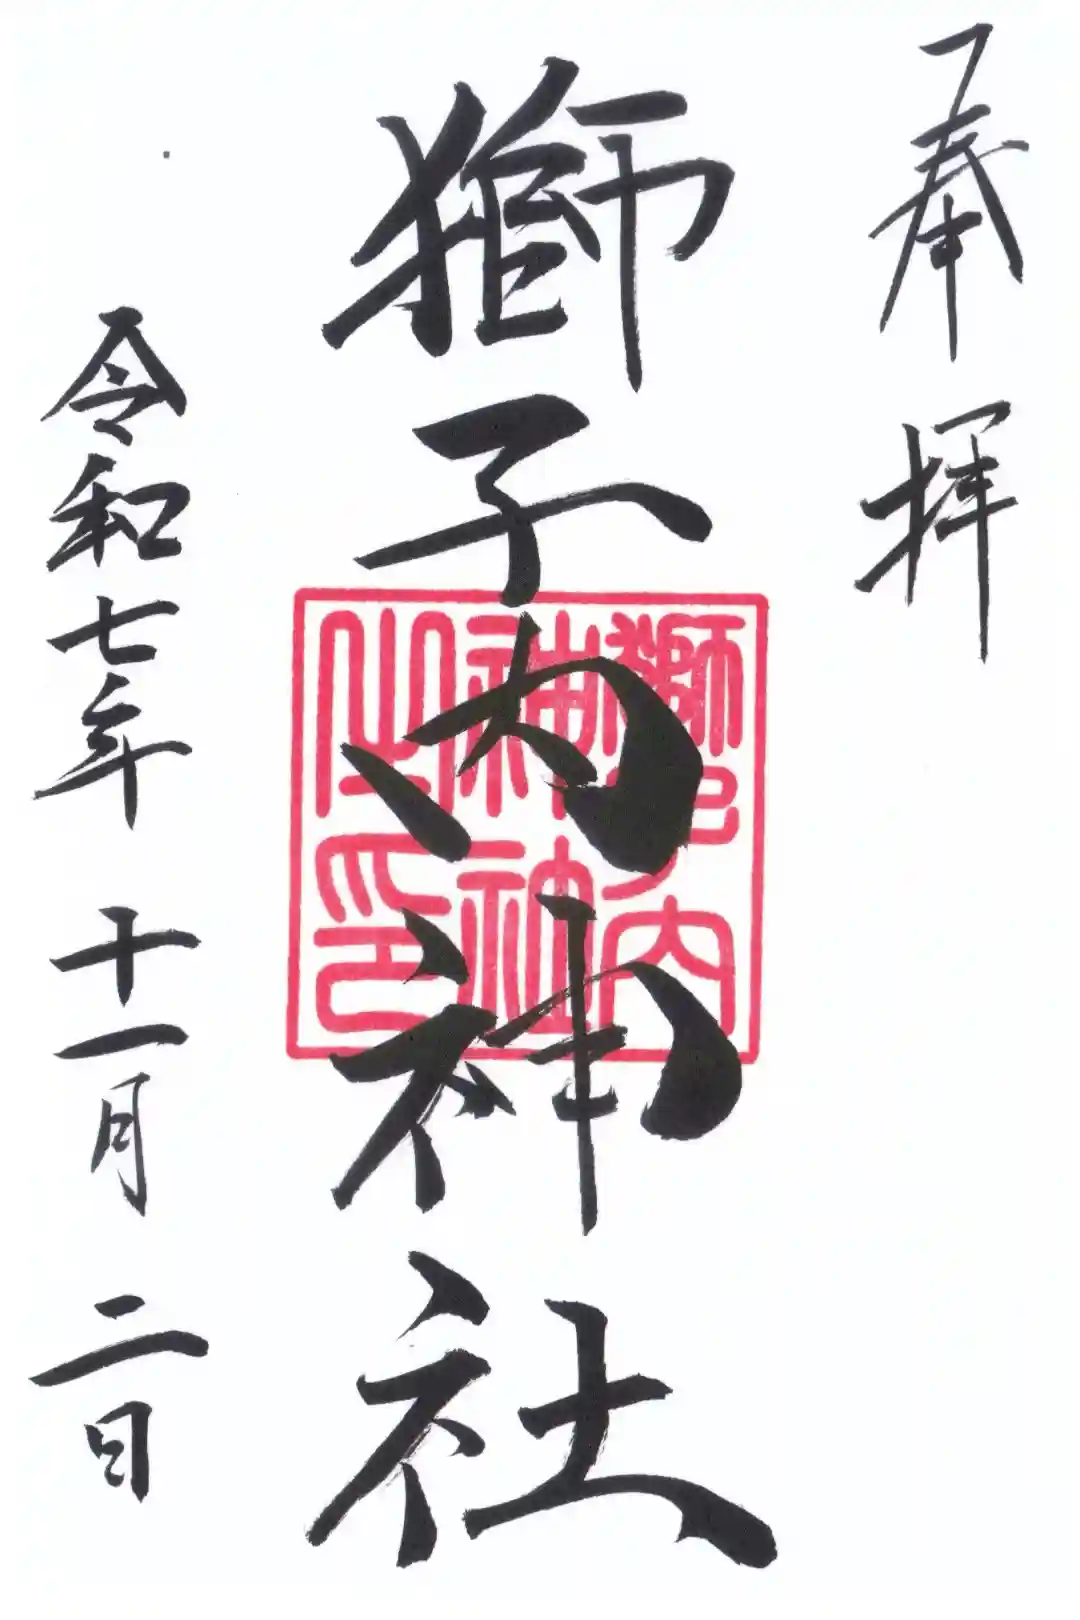 奉拝
獅子内神社
獅子内
神社
之印
令和七年 十一月 二日